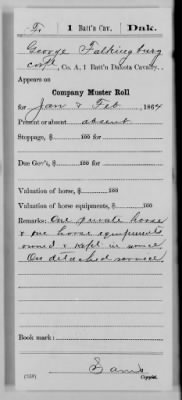 F. 1 Batt'n Cav. Dak.
George Falkingburg
Corpl, Co. A, 1 Batt'n Dakota Cavalry.
Appears on
Company Muster Roll
for Jan & Feb, 1864
Present or absent absent
Stoppage, $ 100 for
Due Gov't, $ 100 for
Valuation of horse, $ 100
Valuation of horse equipments, $ 100
Remarks: One private horse
& one horse equipments
owned & kept in service.
On detached service.
Book mark:
(358)
Copyist.